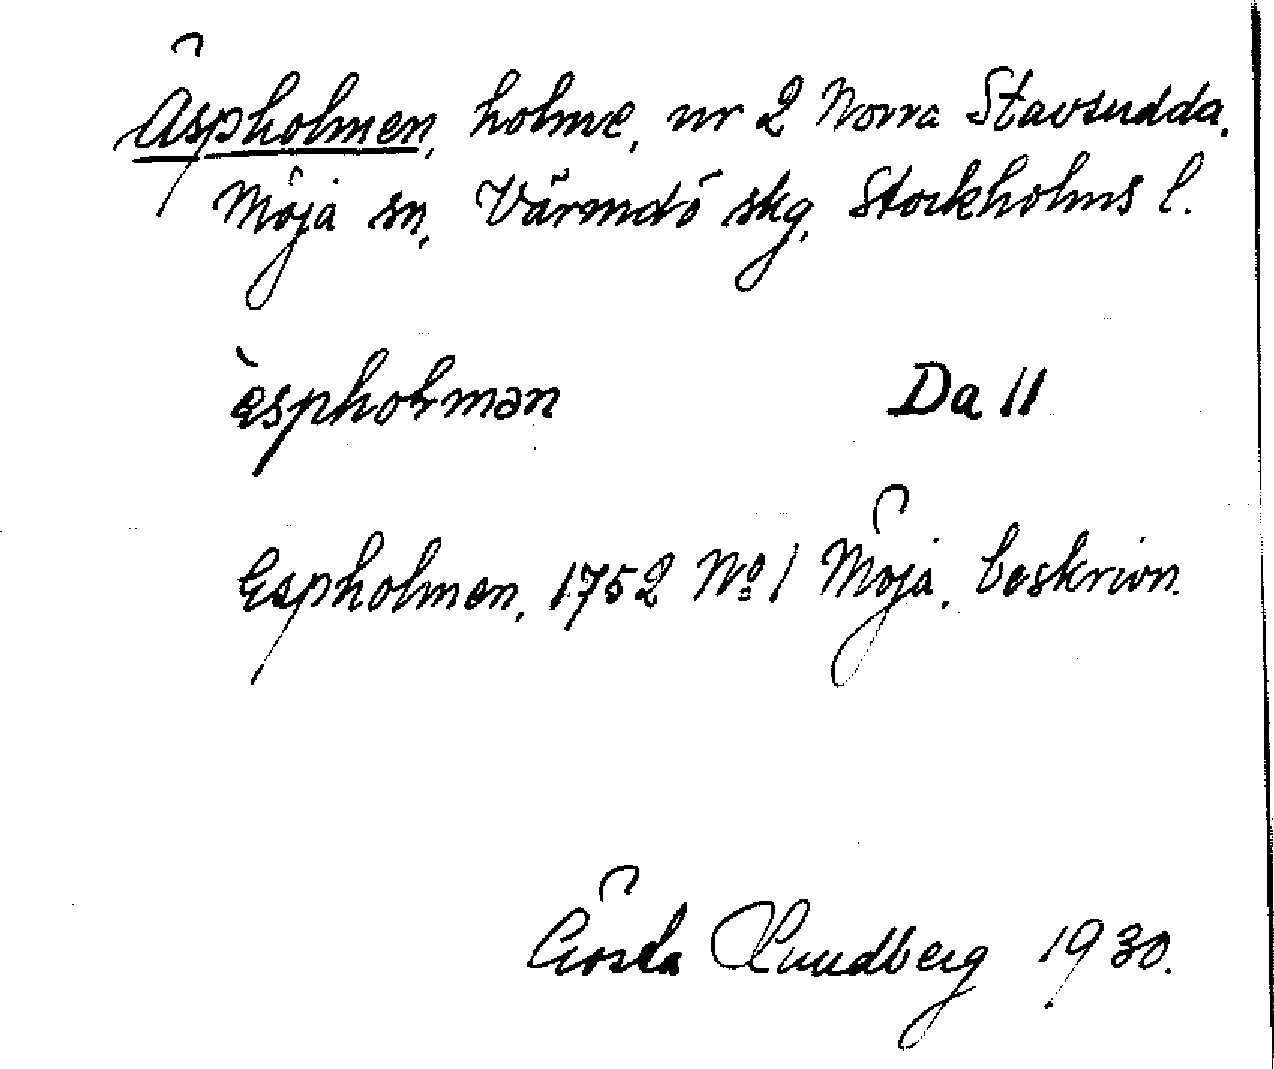 Äspholmen, holme, nr 2 Norra Stavsudda,
Möja sn, Värmdö skg, Stockholms l.
èspholmən Da 11
Espholmen, 1752 No 1 Möja, beskrivn.
Gösta Lundberg 1930.